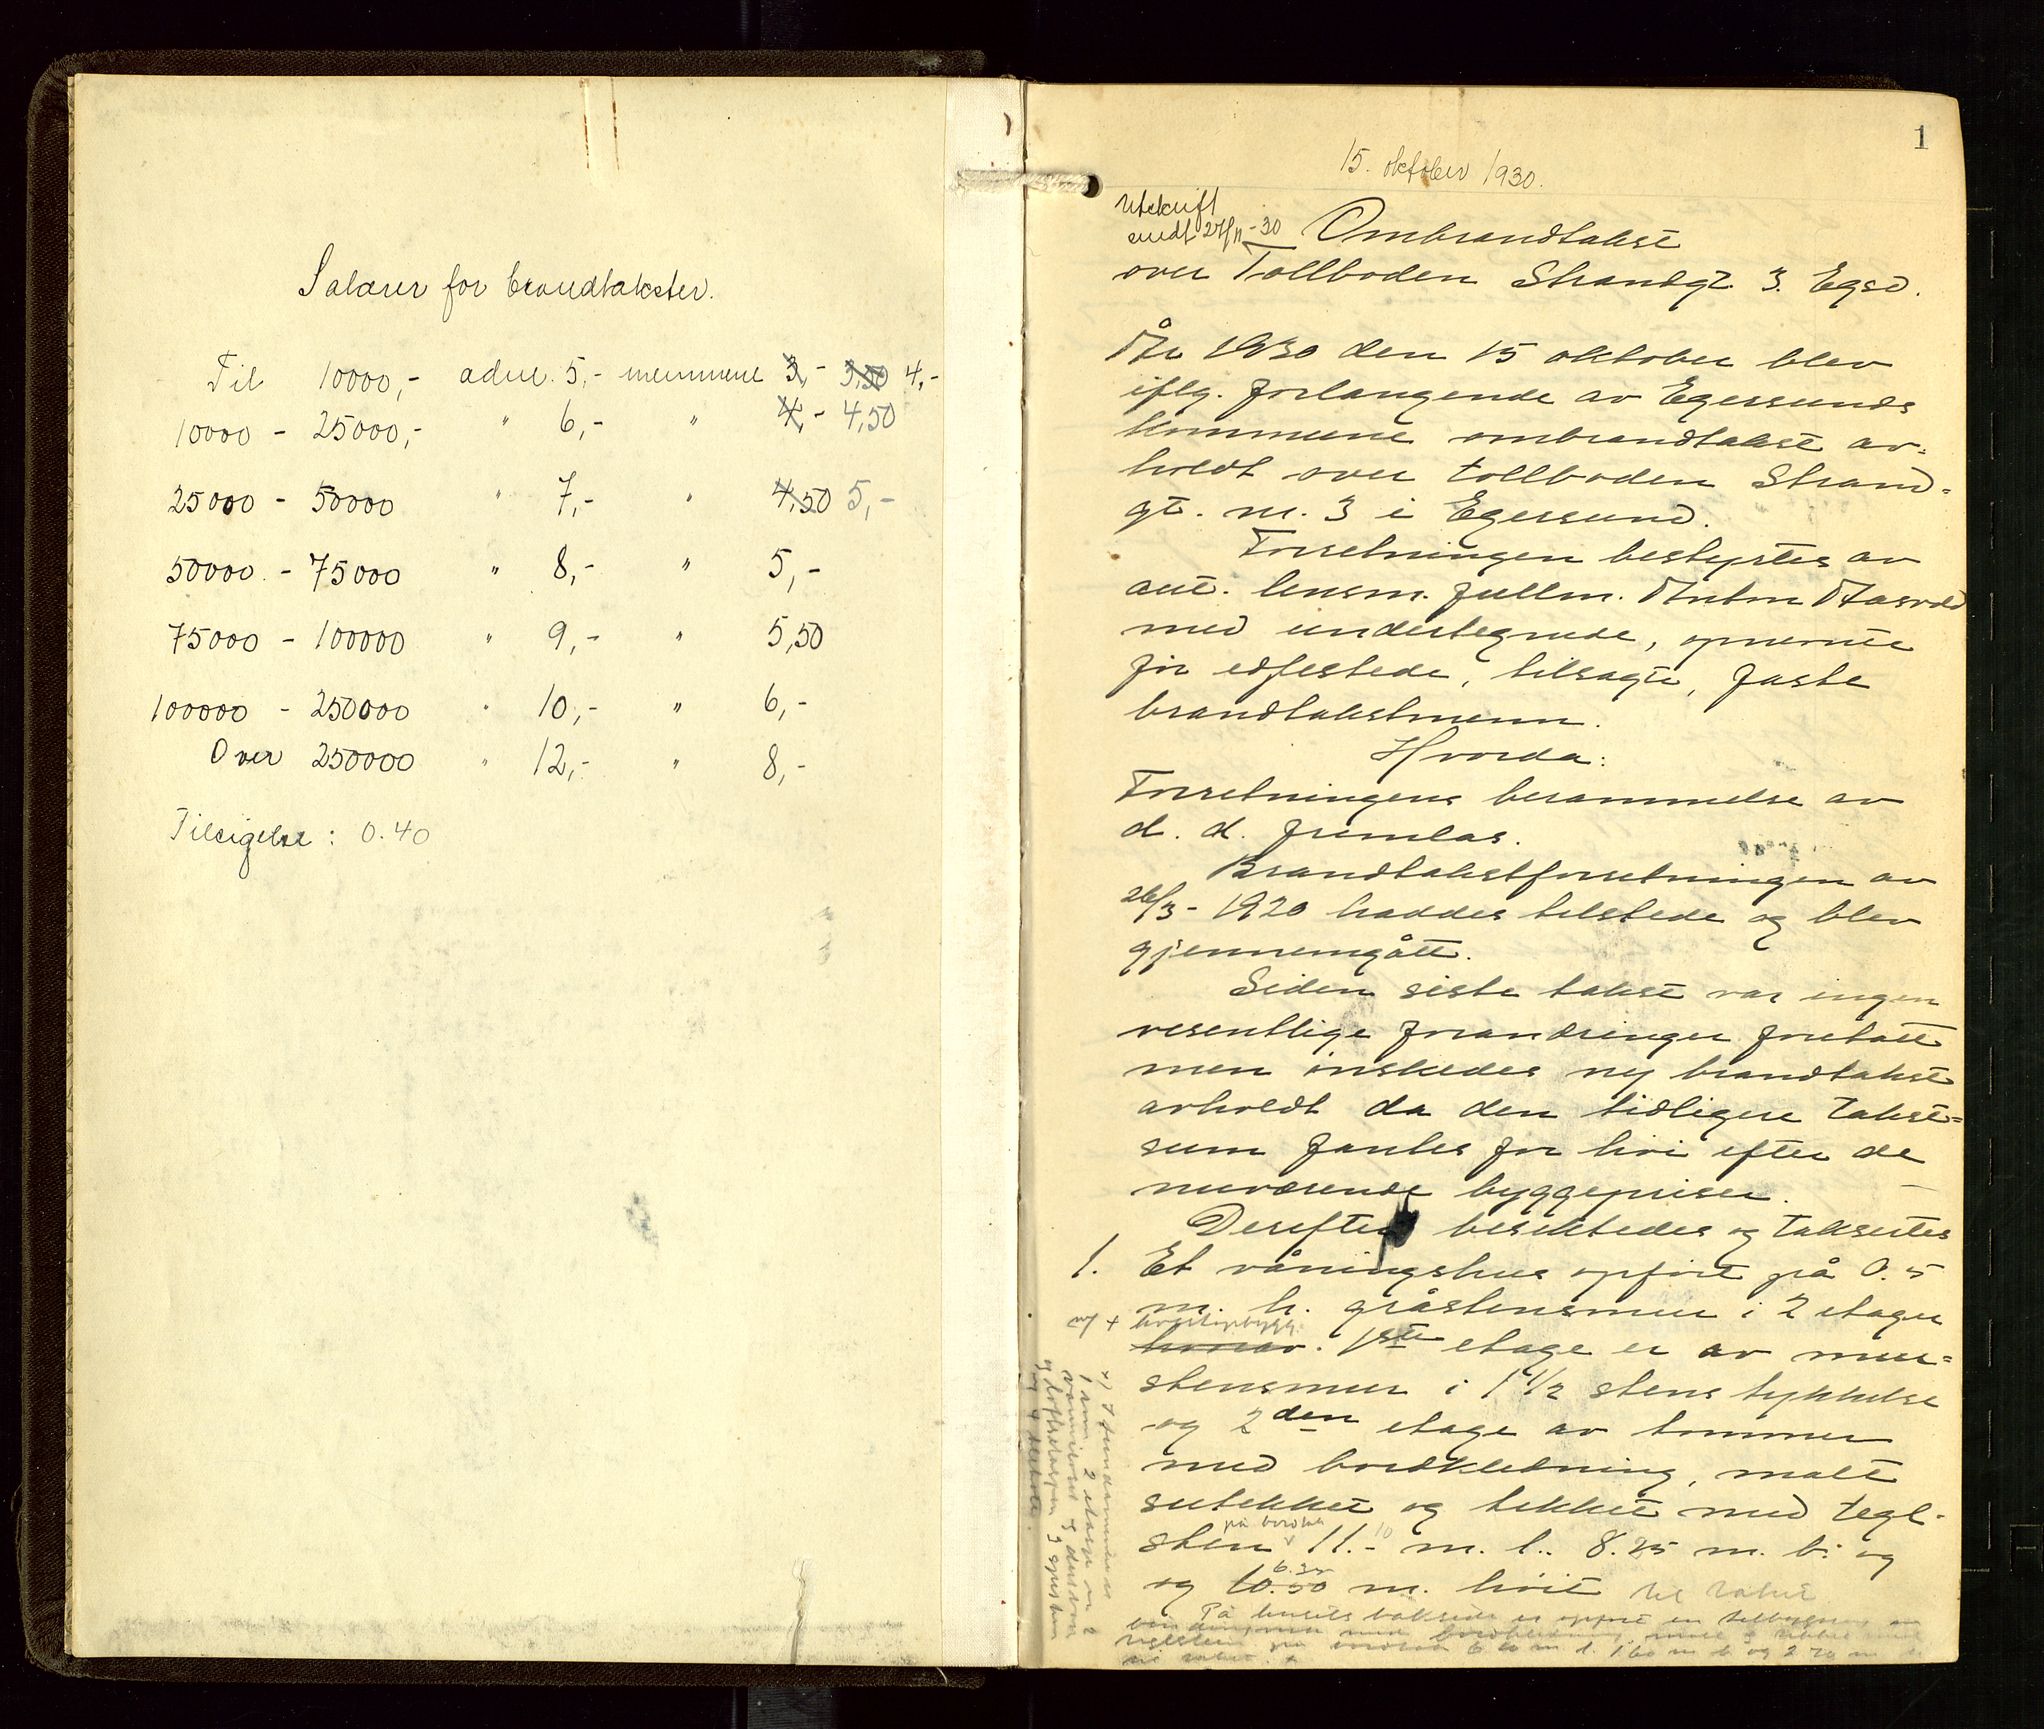 Salærer for brandtakster.
Til 10000,- adm. 5,- mennene 3,- 3,50 4,-
10000 - 25000,- " 6,- " 4,- 4,50
25000 - 50000 " 7,- " 4,50 5,-
50000 - 75000 " 8,- " 5,-
75000 - 100000 " 9,- " 5,50
100000 - 250000 " 10,- " 6,-
Over 250000 " 12,- " 8,-
Tilsigelse : 0.40
1
15. oktober 1930.
Utskrift
sendt 27/11-30
Ombrandtakst
over Tollboden Strandgt. 3. Egsd.
År 1930 den 15 oktober blev
iflg. forlangende av Egersunds
kommune ombrandtakst av-
holdt over tollboden Strand-
gt. nr. 3 i Egersund.
Forretningen bestyrtes av
aut. lensm. fullm. Anton Aasvold
med undertegnede, opnevnte
før edfestede, tilsagte, faste
brandtakstmenn.
Hvorda:
Forretningens berammelse av
d. d. fremlas.
Brandtakstforretningen av
26/3- 1920 haddes tilstede og blev
gjennemgått.
Siden siste takst var ingen
vesentlige forandringer foretatt
men ønskedes ny brandtakst
avholdt da den tidligere takst-
sum fantes for høi efter de
nuværende byggepriser.
Derefter besiktedes og taksertes
1. Et våningshus opført på 0.5
m. h. gråstensmur i 2 etager
1ste etage er av mur-
stensmur i 1 1/2 stens tykkelse
og 2den etage av tømmer
med bordkledning, malt
utekket og tekket med tegl-
på bordtak
sten 11.10 m. l. 8.25 m. b. og
6.30
og 10.50 m. høit til taket
På husets bakside er opført en tilbygning av
bindingsverk med bordkledning, malt og tekket med
teglsten på bordtak 6.10 m l. 1.60 m b og 2.70 m h
til taket. +